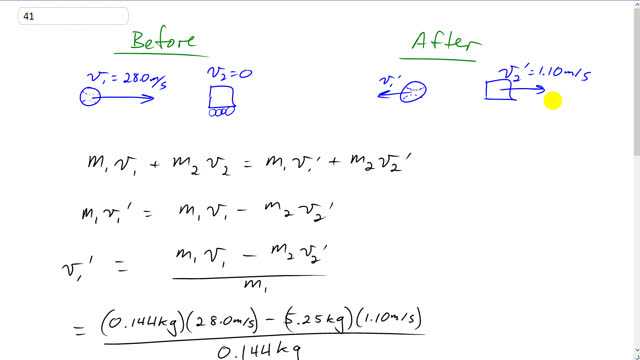 41
Before After
v₁ = 28.0 m/s v₂ = 0 v₁' v₂' = 1.10 m/s
m₁v₁ + m₂v₂ = m₁v₁' + m₂v₂'
m₁v₁' = m₁v₁ - m₂v₂'
v₁' = (m₁v₁ - m₂v₂') / m₁
= (0.144kg)(28.0m/s) - (5.25kg)(1.10m/s)
0.144kg